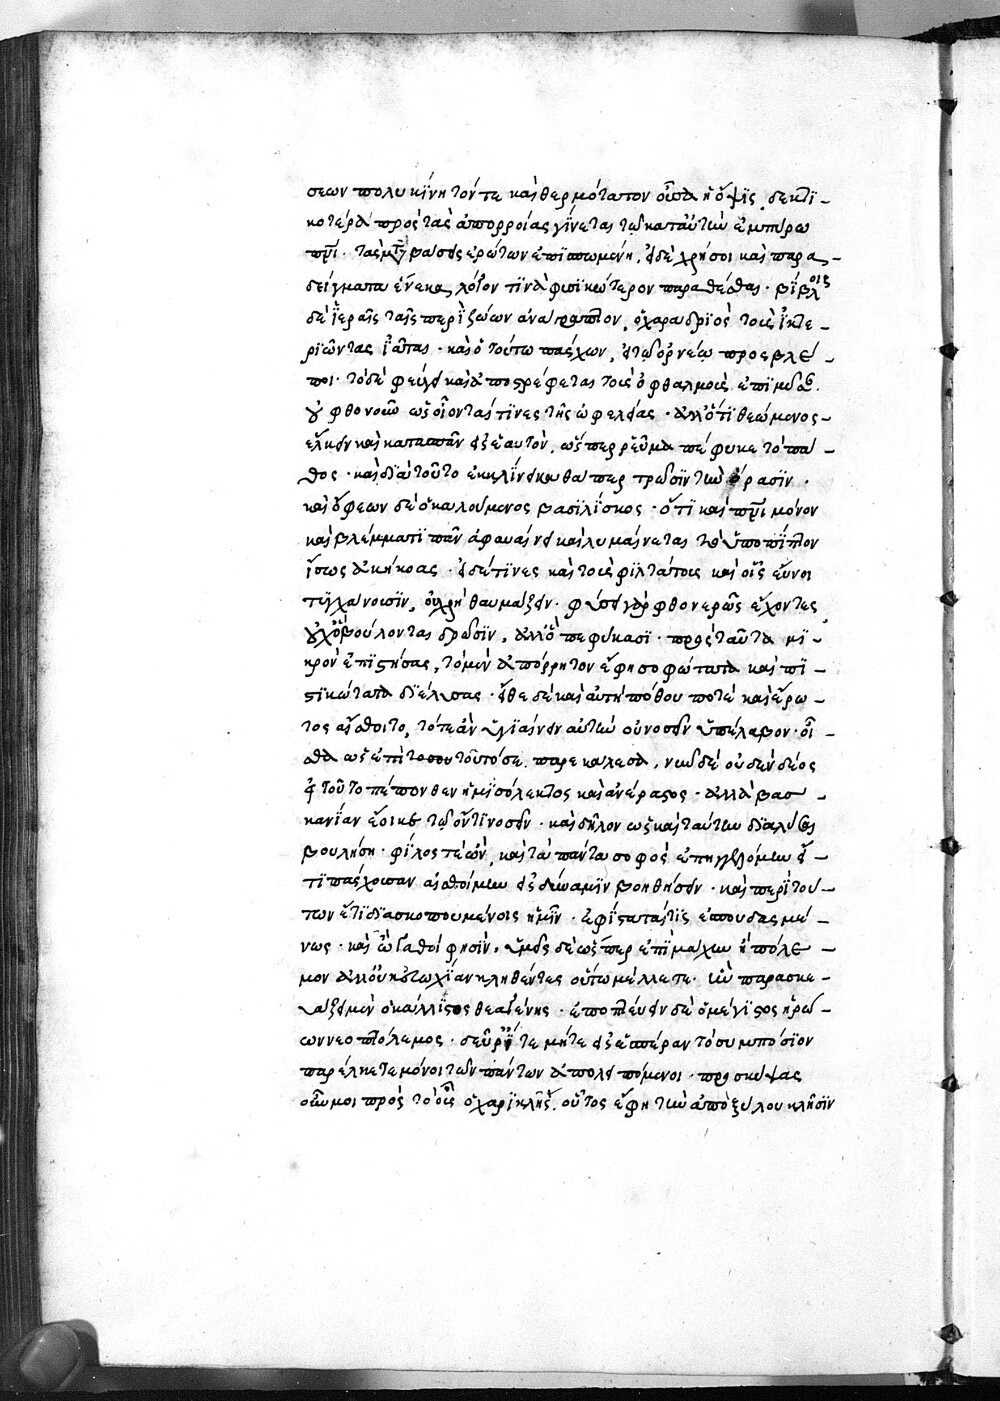 σεων πολυκίνητόν τε καὶ θερμότατον οὖσα ἡ ὄψις, δεκτι-
κοτέρα πρὸς τὰς ἀπορροίας γίνεται τῷ κατ' αὐτὴν ἐμπύρω
πνι· τὰς μεταβάσεις ἐρώτων ἐπισπωμένη, εἰ δὲ χρή σοι καὶ παρα-
δείγματα ἕνεκα λόγον τινὰ φυσικώτερον παραθέσθαι· βίβλοις
δὲ ἱεραῖς ταῖς περὶ ζώων ἀνάγραπτον, ὁ χαραδριὸς τοὺς ἰκτε-
ριῶντας ἰᾶται· καὶ ὁ τοῦτο πάσχων, εἰ τῷ ὀρνέῳ προσβλέ-
ποι· τὸ δὲ φεύγει καὶ ἀποστρέφεται τοὺς ὀφθαλμοὺς ἐπιμύσαν.
οὐ φθονοῦν ὡς οἴονταί τινες τῆς ὠφελείας· ἀλλ' ὅτι θεώμενος
ἕλκειν καὶ κατασπᾶν εἰς ἑαυτὸν, ὥσπερ ῥεῦμα πέφυκε τὸ πά-
θος· καὶ διὰ τοῦτο ἐκκλίνει καθάπερ τρῶσιν τὴν ὅρασιν.
καὶ ὄφεων δὲ ὁ καλούμενος βασιλίσκος· ὅτι καὶ πνι μόνον
καὶ βλέμματι πᾶν ἀφαυαίνει καὶ λυμαίνεται τὸ ὑποπίπτον
ἴσως ἀκήκοας· εἰ δέ τινες καὶ τοὺς φιλτάτοις καὶ οἷς εὖνοι
τυγχάνοισιν, οὐ χρὴ θαυμάζειν· φύσει γὰρ φθονερῶς ἔχοντες,
οὐχ ὃ βούλονται δρῶσιν, ἀλλ' ὃ πεφύκασι· πρὸς ταῦτα μι-
κρὸν ἐπιστήσας, τὸ μὲν ἀπόρρητον ἔφη σοφώτατα καὶ πι-
στικώτατα διέλυσας· εἴθε δὲ καὶ αὐτὴ πόθου ποτὲ καὶ ἔρω-
τος αἴσθοιτο, τότε ἂν ὑγιαίνειν αὐτὴν οὐ νοσεῖν ὑπέλαβον· οἶ-
σθα ὡς ἐπὶ τοῦτό σε παρεκάλεσα, νῦν δὲ οὐδὲν δέος
εἰ τοῦτο πέπονθεν ἡ μισόλεκτος καὶ ἀνέραστος· ἀλλὰ βασ-
κανίαν ἔοικε τῷ ὄντι νοσεῖν· καὶ δῆλον ὡς καὶ ταύτην διαλῦσαι
βουλήσῃ· φίλος τε ὢν, καὶ τὰ πάντα σοφὸς ἐπηγγελλόμην εἴ
τι πάσχοισαν αἰσθοίμην εἰς δύναμιν βοηθήσειν· καὶ περὶ τού-
των ἔτι διασκοπουμένοις ἡμῖν· ἐφίσταταί τις ἐσπουδασμέ-
νως· καὶ ὦγαθοί φησιν, ὑμεῖς δὲ ὥσπερ ἐπὶ μάχην ἢ πόλε-
μον ἀλλ' οὐκ εὐωχίαν κληθέντες οὕτω μέλλετε· ἣν παρασκευ-
άζει μὲν ὁ κάλλιστος θεαγένης· ἐποπτεύειν δὲ ὁ μέγιστος ἡρώ-
ων νεοπτόλεμος· δεῦρ' ἴτε μήτε εἰς ἑσπέραν τὸ συμπόσιον
παρέλκετε μόνοι τῶν πάντων ἀπολειπόμενοι· προσκύψας
οὖν μοι πρὸς τὸ οὖς ὁ χαρικλῆς, οὗτος ἔφη τὴν ἀπὸ ξύλου κλῆσιν